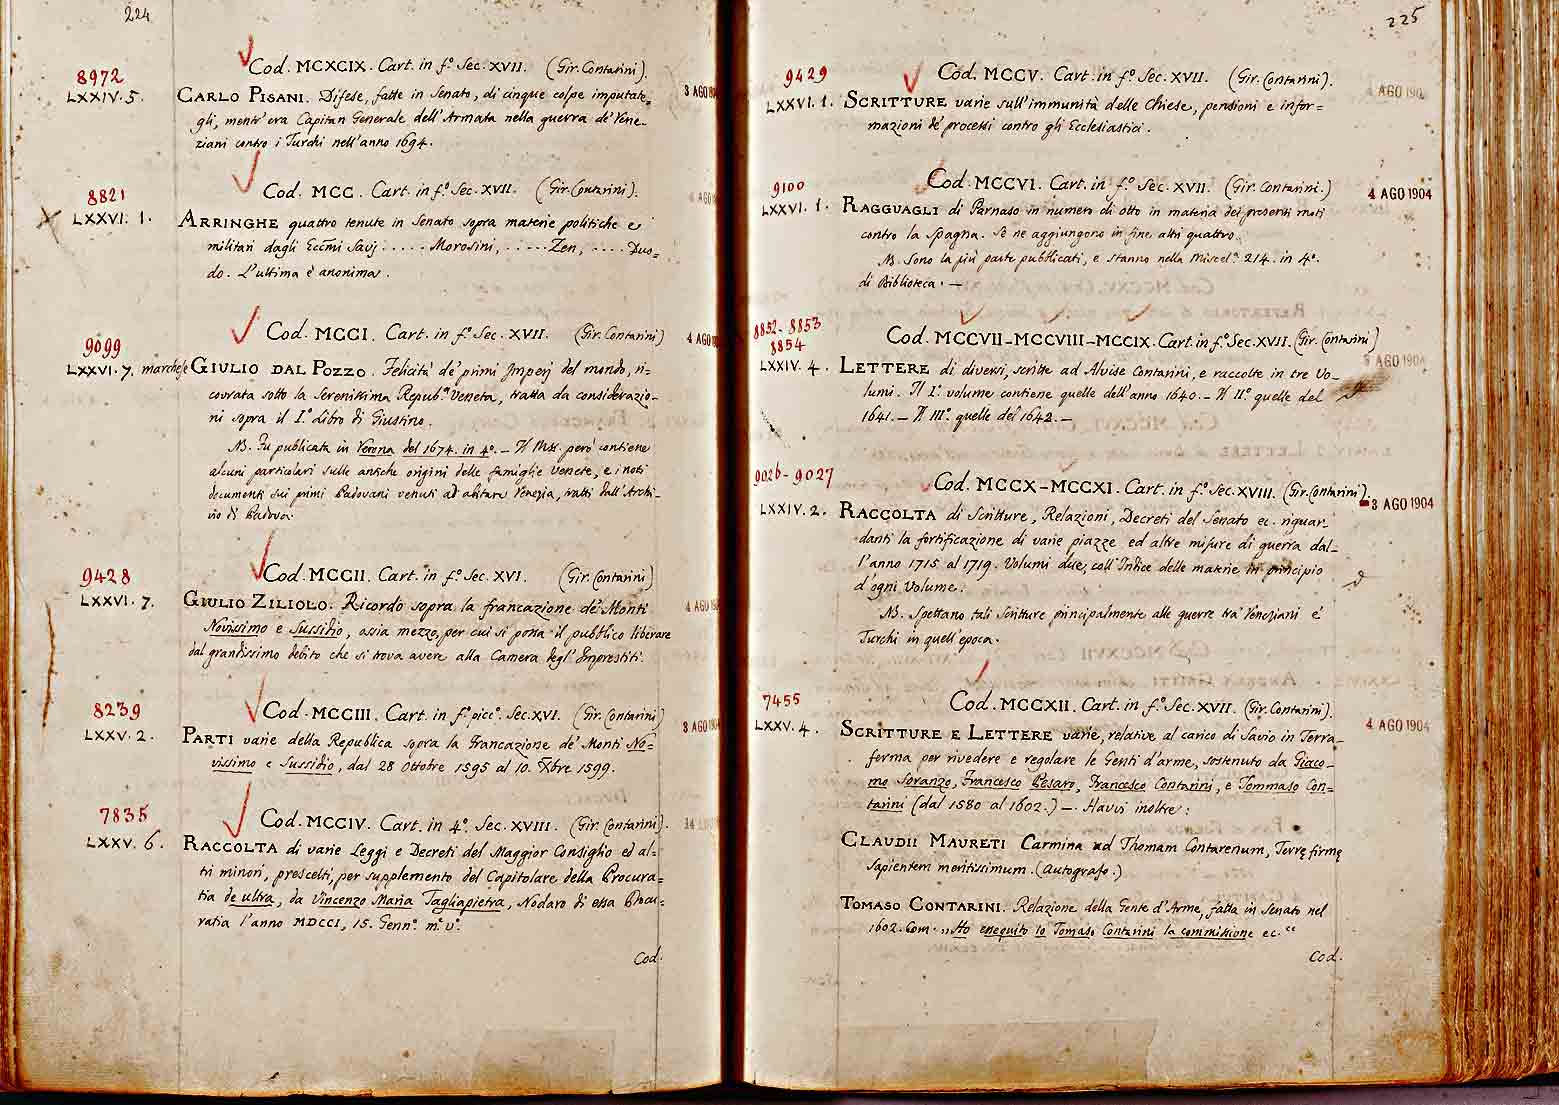 224
Cod. MCXCIX. Cart. in fº. Sec. XVII. (Gir. Contarini).
8972
LXXIV. 5.
CARLO PISANI. Difese, fatte in Senato, di cinque colpe imputate=
gli, mentr' era Capitan Generale dell' Armata nella guerra de' Vene-
ziani contro i Turchi nell' anno 1694.
3 AGO
Cod. MCC. Cart. in fº. Sec. XVII. (Gir. Contarini).
8821
LXXVI. 1.
ARRINGHE quattro tenute in Senato sopra materie politiche e
militari dagli Eccm̃i Savj ..... Morosini, ..... Zen, ..... Duo=
do. L'ultima è anonima.
AGO
Cod. MCCI. Cart. in fº. Sec. XVII. (Gir. Contarini)
9099
LXXVI. 7.
marchese GIULIO DAL POZZO. Felicità de' primi Imperj del mondo, ri-
covrata sotto la Serenissima Repub.ª Veneta, tratta da considerazio-
ni sopra il Iº. Libro di Giustino.
4 AGO
NB. Fu pubblicata in Verona del 1674. in 4º. — Il MS. però contiene
alcuni particolari sulle antiche origini delle famiglie Venete, e i noti
documenti sui primi Padovani venuti ad abitare Venezia, tratti dall' Archi-
vio di Padova.
Cod. MCCII. Cart. in fº. Sec. XVI. (Gir. Contarini)
9428
LXXVI. 7.
GIULIO ZILIOLO. Ricordo sopra la francazione de' Monti
Novissimo e Sussidio, ossia mezzo, per cui si possa il pubblico liberare
dal grandissimo debito che si trova avere alla Camera degl' Imprestiti.
4 AGO
Cod. MCCIII. Cart. in fº. picc.º Sec. XVI. (Gir. Contarini)
8239
LXXV. 2.
PARTI varie della Republica sopra la Francazione de' Monti No=
vissimo e Sussidio, dal 28 Ottobre 1595 al 10. Xbre 1599.
3 AGO
Cod. MCCIV. Cart. in 4º. Sec. XVIII. (Gir. Contarini).
7835
LXXV. 6.
RACCOLTA di varie Leggi e Decreti del Maggior Consiglio ed al=
tri minori, prescelti, per supplemento del Capitolare della Procura=
tia de ultra, da Vincenzo Maria Tagliapietra, Nodaro di essa Procu=
ratia l' anno MDCCI, 15. Gennº. m.º v.º
14
Cod.
225
Cod. MCCV. Cart. in fº. Sec. XVII. (Gir. Contarini).
9429
LXXVI. 1.
SCRITTURE varie sull' immunità delle Chiese, pensioni e infor=
mazioni de' processi contro gli Ecclesiastici.
AGO 190
Cod. MCCVI. Cart. in fº. Sec. XVII. (Gir. Contarini.)
9100
LXXVI. 1.
RAGGUAGLI di Parnaso in numero di otto in materia dei presenti moti
contro la Spagna. Se ne aggiungono in fine altri quattro.
4 AGO 1904
NB. Sono la più parte pubblicati, e stanno nella Miscelª. 214. in 4º.
di Biblioteca. —
Cod. MCCVII-MCCVIII-MCCIX. Cart. in fº. Sec. XVII. (Gir. Contarini)
8852-8853
8854
LXXIV. 4.
LETTERE di diversi, scritte ad Alvise Contarini, e raccolte in tre Vo-
lumi. Il Iº. volume contiene quelle dell' anno 1640. — Il IIº. quelle del
1641. — Il IIIº. quelle del 1642. —
AGO 1904
Cod. MCCX-MCCXI. Cart. in fº. Sec. XVIII. (Gir. Contarini).
9026-9027
LXXIV. 2.
RACCOLTA di Scritture, Relazioni, Decreti del Senato ec. riguar-
danti la fortificazione di varie piazze ed altre misure di guerra dal-
l' anno 1715 al 1719. Volumi due, coll' Indice delle materie in principio
d' ogni Volume.
3 AGO 1904
NB. Spettano tali Scritture principalmente alle guerre tra' Veneziani e'
Turchi in quell' epoca.
Cod. MCCXII. Cart. in fº. Sec. XVII. (Gir. Contarini).
7455
LXXV. 4.
SCRITTURE E LETTERE varie, relative al carico di Savio in Terra-
ferma per rivedere e regolare le Genti d' arme, sostenuto da Giaco-
mo Soranzo, Francesco Pesaro, Francesco Contarini, e Tommaso Con-
tarini (dal 1580 al 1602.) — Havvi inoltre:
4 AGO 1904
CLAUDII MAURETI Carmina ad Thomam Contarenum, Terrę firmę
Sapientem meritissimum. (Autografo.)
TOMASO CONTARINI. Relazione della Gente d' Arme, fatta in Senato nel
1602. Com. „Ho eseguito io Tomaso Contarini la commissione ec."
Cod.